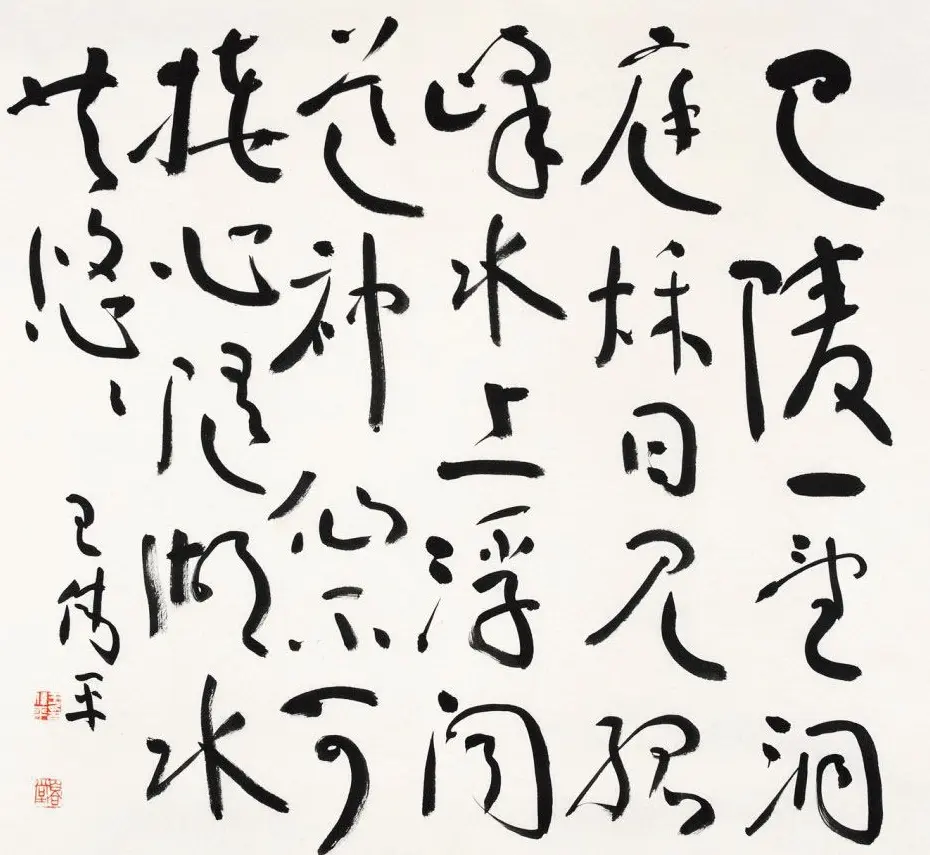 巴陵一望洞
庭秋日見孤
峰水上浮聞
道神仙不可
接心隨湖水
共悠々
王偉平